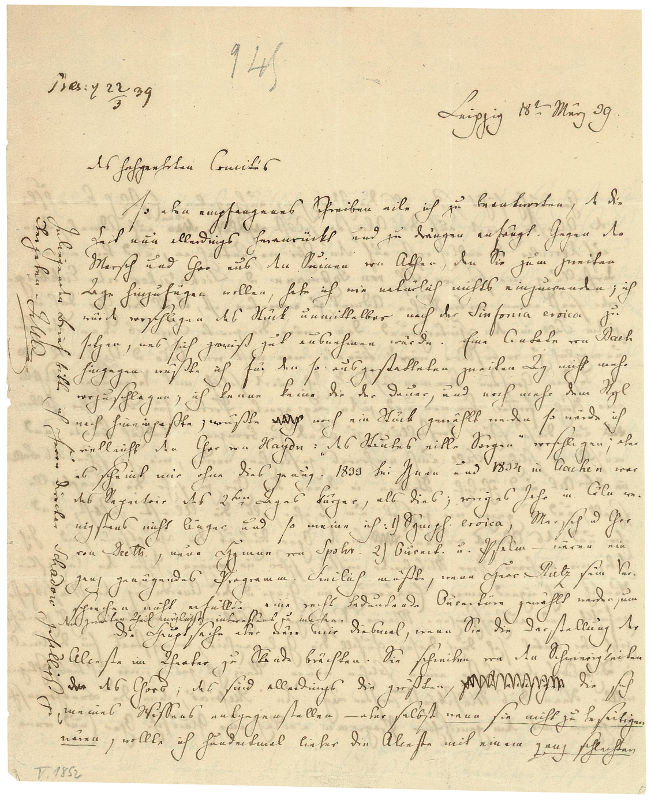 945
22/3 39
Leipzig 18t März 39.
des hochgeehrten Comités
so eben empfangenes Schreiben eile ich zu beantworten, da die
Zeit nun allerdings heranrückt und zu drängen anfängt. Gegen den
Marsch und Chor aus den Ruinen von Athen, den Sie zum zweiten
Tage hinzufügen wollen, habe ich wie natürlich nichts einzuwenden; ich
würde vorschlagen das Stück unmittelbar nach der Sinfonia eroica zu
setzen, was sich gewiß gut ausnehmen würde. Eine Cantate von Beeth
hingegen wüßte ich für den so ausgestatteten zweiten Tag nicht mehr
vorzuschlagen; ich kenne keine die der Dauer, und noch mehr dem Styl
nach hineinpaßte; müßte noch ein Stück gewählt werden so würde ich
vielleicht den Chor von Haydn: "des Staubes eitle Sorgen" vorschlagen; aber
es scheint mir ohne dies genug; 1833 bei Ihnen und 1834 in Aachen war
das Repertoir des 2ten Tages kürzer, als dies; voriges Jahr in Cöln we-
nigstens nicht länger und so meine ich: 1) Symph. eroica, Marsch u Chor
von Beeth, neue Hymne von Spohr. 2) Ouvert. u. Psalm – wären ein
ganz genügendes Programm. Freilich müßte, wenn Herr Rietz sein Ver-
sprechen nicht erfüllte eine recht bedeutende Ouvertüre gewählt werden, um
den zweiten Theil möglichst interessant zu machen.
Die Hauptsache aber wäre mir diesmal, wenn Sie die Darstellung der
Alceste im Theater zu Stande brächten. Sie schreiben von den Schwierigkeiten
des Chors; das sind allerdings die größten, die sich
meines Wissens entgegenstellen – aber selbst wenn sie nicht zu beseitigen
wären, wollte ich hundertmal lieber die Alceste mit einem ganz schlechten
Inliegenden Brief bitte ich Herrn Director Schadow gefälligst zu
übergeben
V. 1852